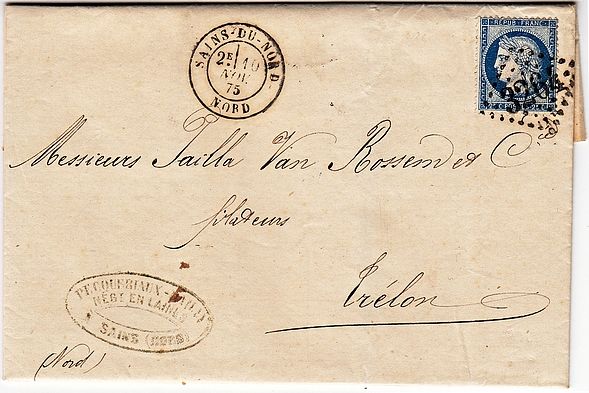 SAINS-DU-NORD
2E 10
NOV.
75
NORD
REPUB. FRANC.
Messieurs Tailla Van Rossem et C
filateurs
Trélon
NEGT EN LAINES
SAINS (NORD)
(Nord)